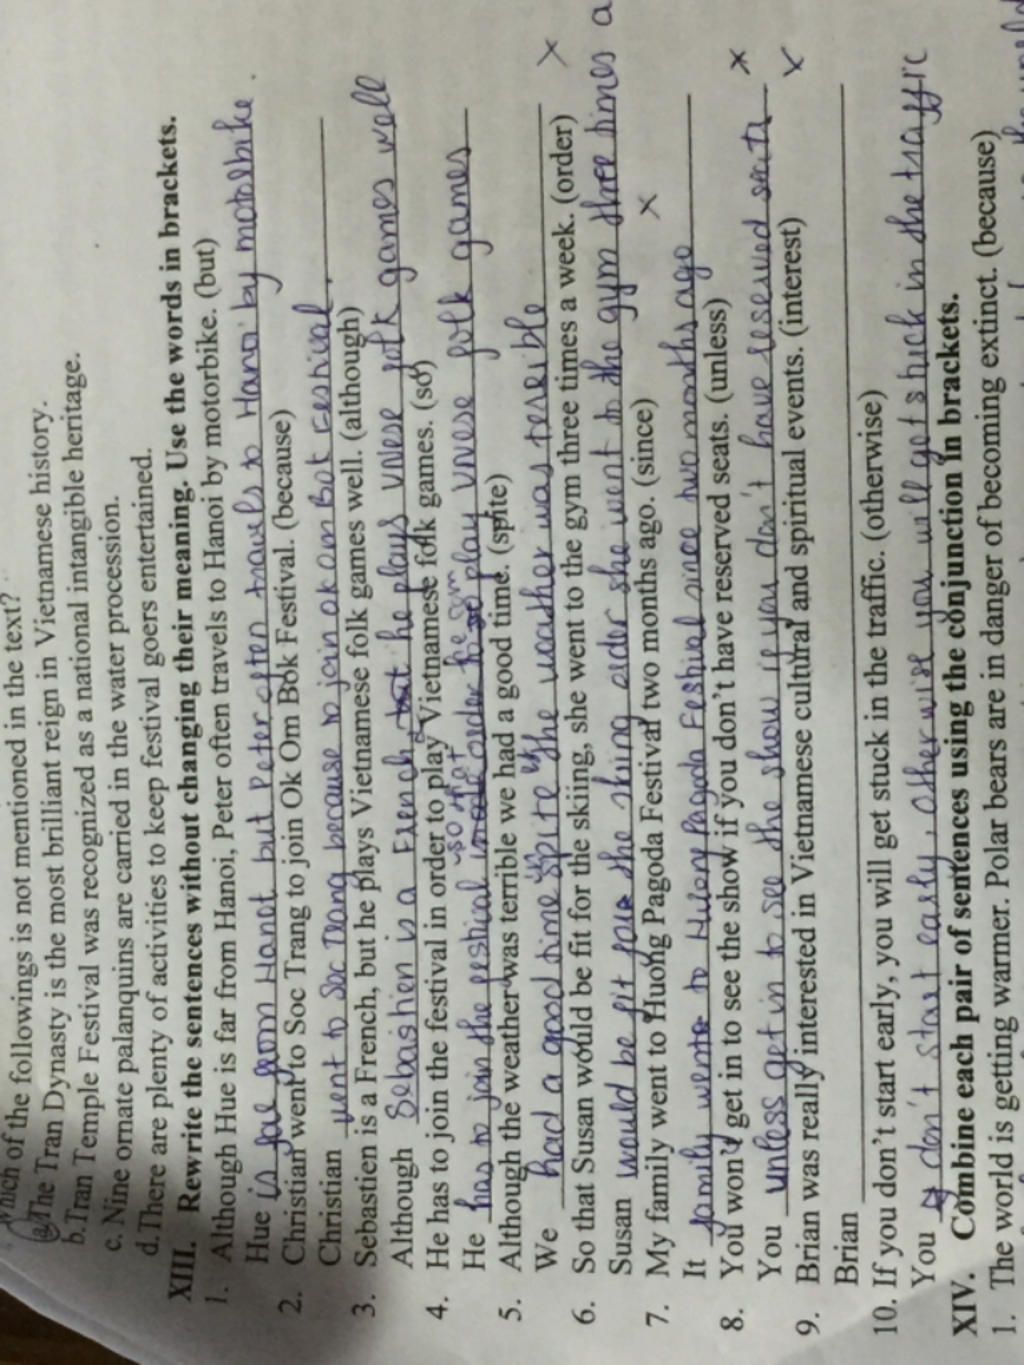 Which of the followings is not mentioned in the text?
a. The Tran Dynasty is the most brilliant reign in Vietnamese history.
b. Tran Temple Festival was recognized as a national intangible heritage.
c. Nine ornate palanquins are carried in the water procession.
d. There are plenty of activities to keep festival goers entertained.
XIII. Rewrite the sentences without changing their meaning. Use the words in brackets.
1. Although Hue is far from Hanoi, Peter often travels to Hanoi by motorbike. (but)
Hue is far from Hanoi but Peter often travels to Hanoi by motorbike.
2. Christian went to Soc Trang to join Ok Om Bok Festival. (because)
Christian went to Soc Trang because to join ok om Bok festival.
3. Sebastien is a French, but he plays Vietnamese folk games well. (although)
Although Sebastien is a French but he plays Vnese folk games well
4. He has to join the festival in order to play Vietnamese folk games. (so)
He has to join the festival so that he can play Vnese folk games
5. Although the weather was terrible we had a good time. (spite)
We had a good time spite the weather was terrible x
6. So that Susan would be fit for the skiing, she went to the gym three times a week. (order)
Susan would be fit for the skiing order she went to the gym three times a
7. My family went to Huong Pagoda Festival two months ago. (since) x
It family went to Huong Pagoda Festival since two months ago
8. You won't get in to see the show if you don't have reserved seats. (unless) x
You unless get in to see the show if you don't have reserved seats x
9. Brian was really interested in Vietnamese cultural and spiritual events. (interest)
Brian
10. If you don't start early, you will get stuck in the traffic. (otherwise)
You don't start early, otherwise you will get stuck in the traffic
XIV. Combine each pair of sentences using the conjunction in brackets.
1. The world is getting warmer. Polar bears are in danger of becoming extinct. (because)